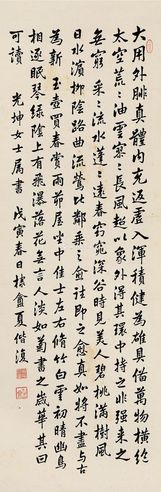 大用外腓真體內充返虛入渾積健為雄具備萬物橫絕
太空荒々油雲寥々長風超以象外得其環中持之非強來之
無窮采々流水蓬々遠春窈窕深谷時見美人碧桃滿樹風
日水濱柳陰路曲流鶯比鄰乘之愈往即之愈真如將不盡與古
為新玉壺買春賞雨茆屋坐中佳士左右脩竹白雲初晴幽鳥
相逐眠琴綠陰上有飛瀑落花無言人淡如菊書之歲華其曰
可讀
光坤女士属書 戊寅春日棣龕夏偕復